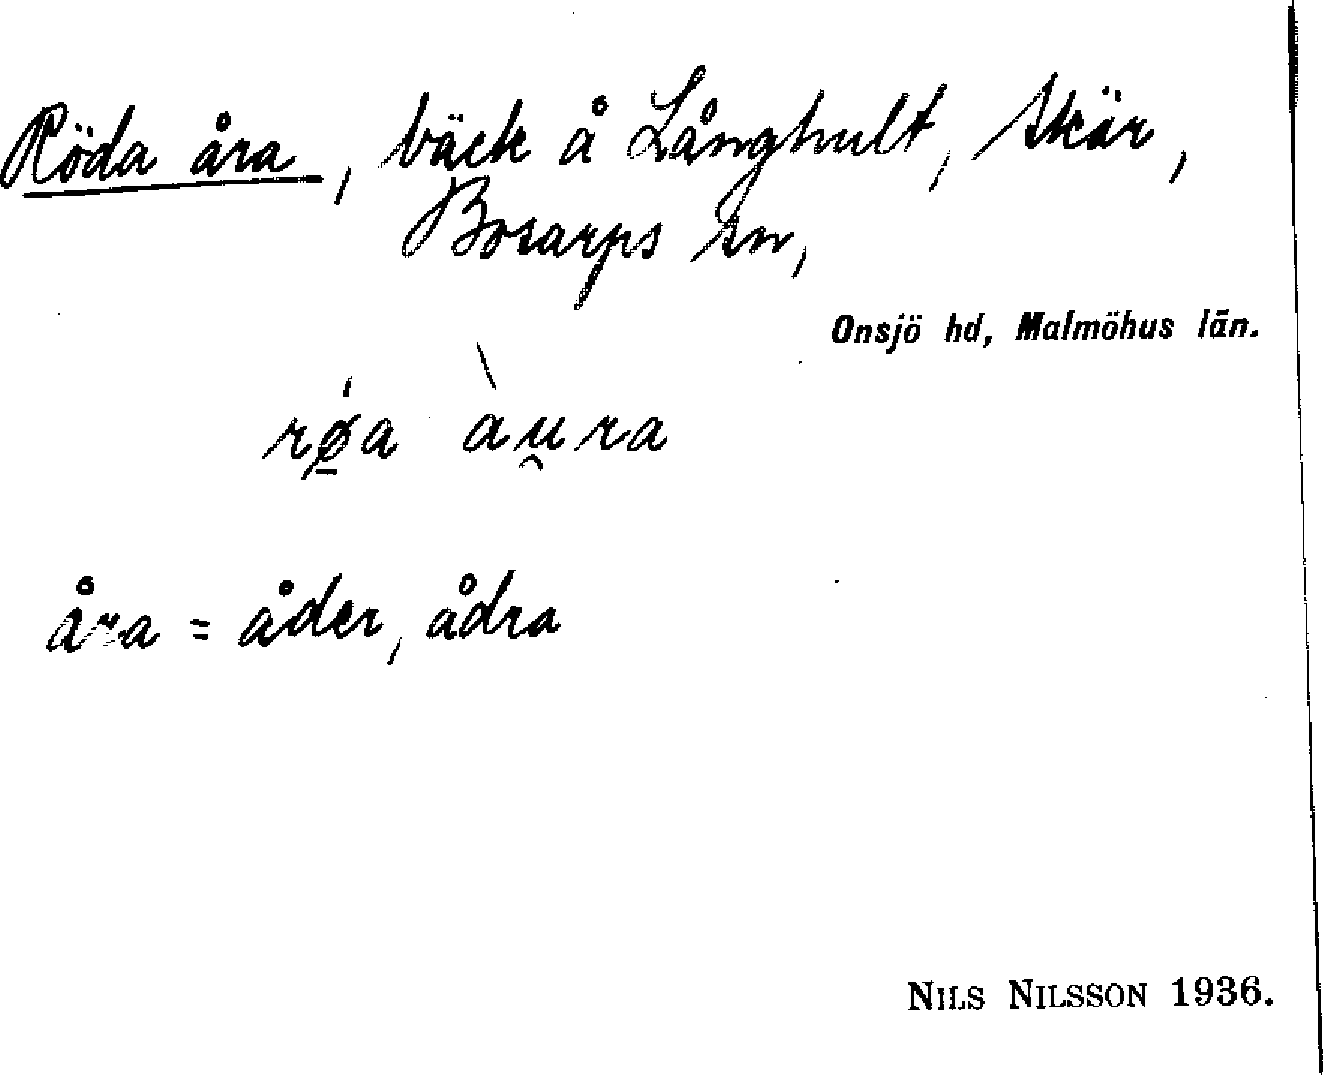 Röda åra, bäck å Långhult, Skär,
Bosarps sn,
Onsjö hd, Malmöhus län.
rǿ̱a àu̯ra
åra = åder, ådra
NILS NILSSON 1936.